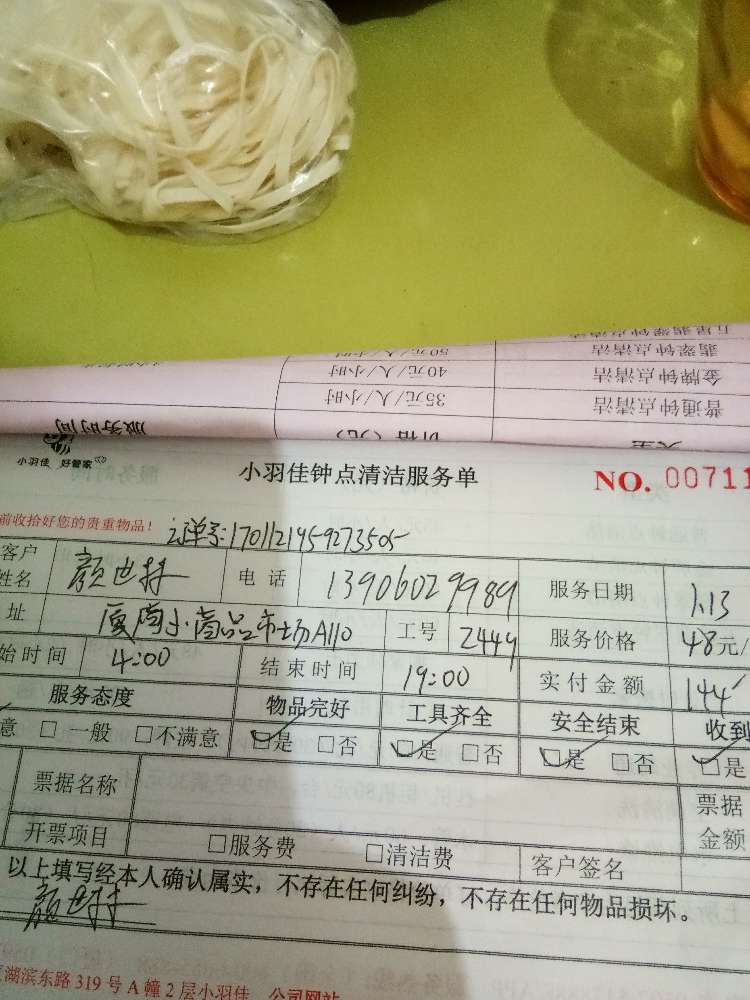 五星翡翠钟点清洁
翡翠钟点清洁 50元/人/小时
金牌钟点清洁 40元/人/小时
普通钟点清洁 35元/人/小时
价格（元） 服务时间
小羽佳 好管家
小羽佳钟点清洁服务单
NO. 00711
前收拾好您的贵重物品！
订单号:1701121459273505
客户姓名 颜世持 电话 13906029989 服务日期 1.13
址 厦商小商品市场A110 工号 2449 服务价格 48元/
始时间 4:00 结束时间 19:00 实付金额 144
服务态度 物品完好 工具齐全 安全结束 收到
意 □一般 □不满意 ☑是 □否 ☑是 □否 ☑是 □否 ☑是
票据名称 票据金额
开票项目 □服务费 □清洁费 客户签名
以上填写经本人确认属实，不存在任何纠纷，不存在任何物品损坏。
颜世持
湖滨东路319号A幢2层小羽佳 公司网站